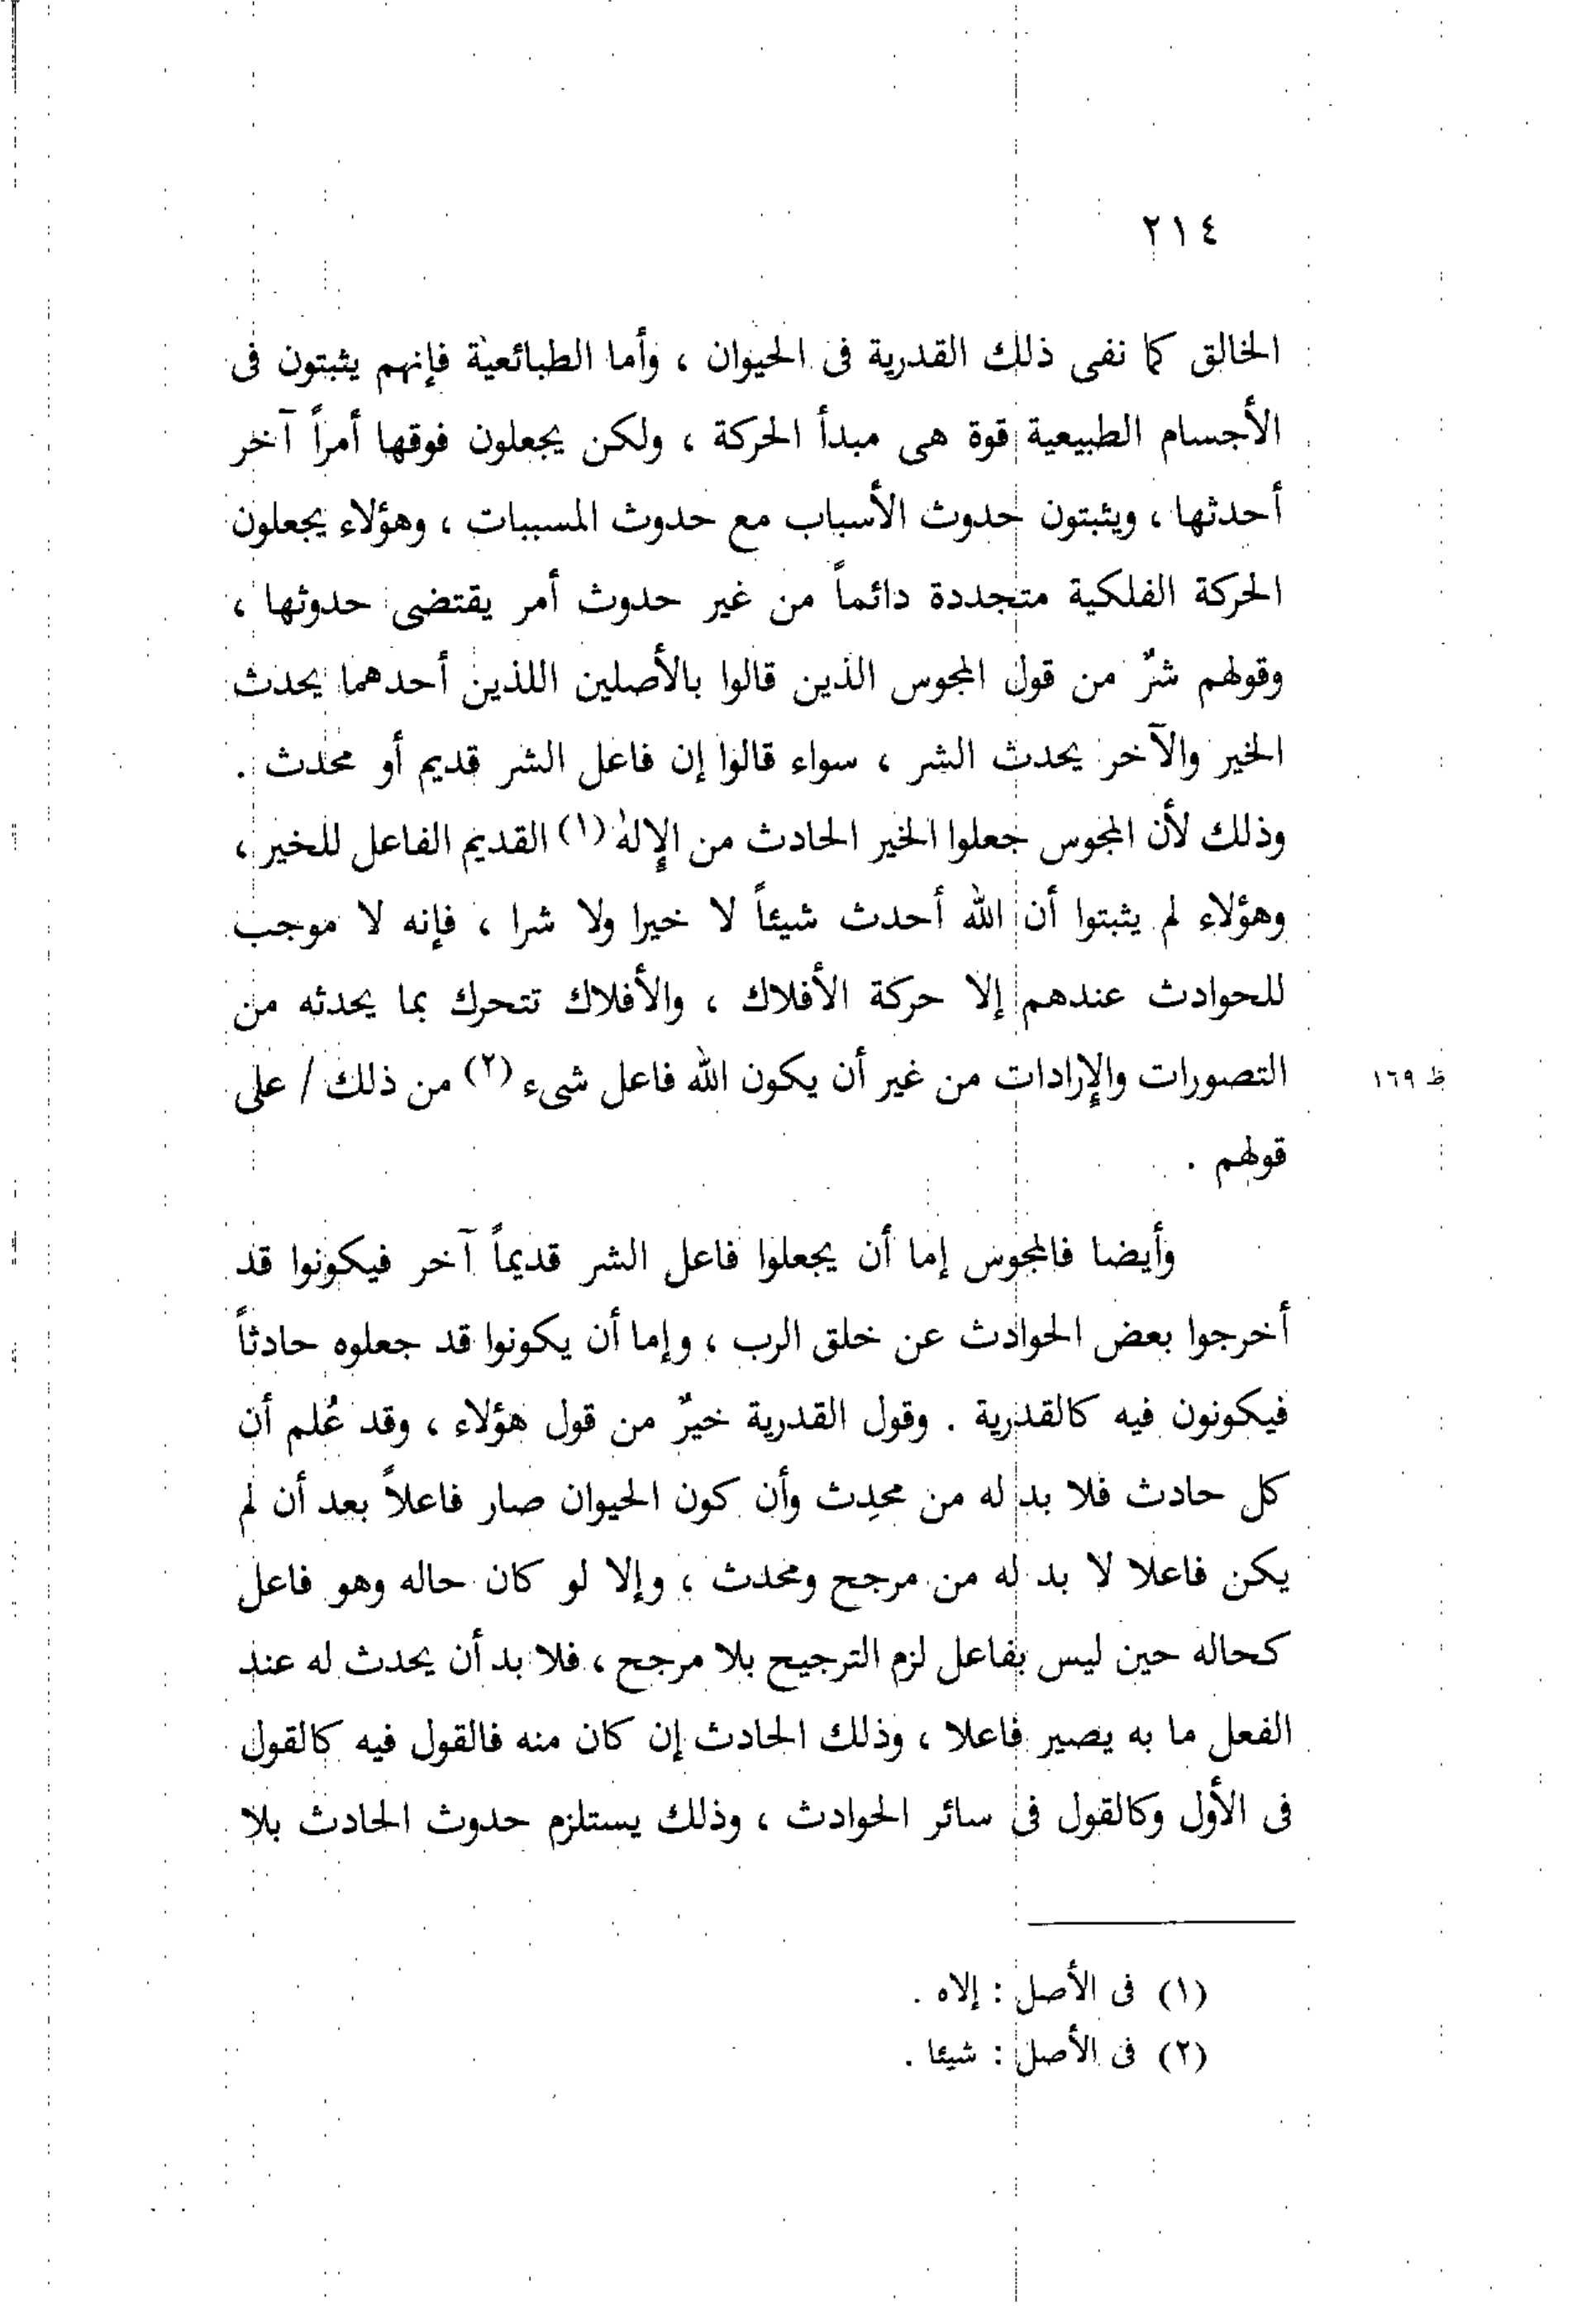 ٢١٤
الخالق كما نفى ذلك القدرية فى الحيوان ، وأما الطبائعية فإنهم يثبتون فى
الأجسام الطبيعية قوة هى مبدأ الحركة ، ولكن يجعلون فوقها أمراً آخر
أحدثها ، ويثبتون حدوث الأسباب مع حدوث المسببات ، وهؤلاء يجعلون
الحركة الفلكية متجددة دائماً من غير حدوث أمر يقتضى حدوثها ،
وقولهم شرٌ من قول المجوس الذين قالوا بالأصلين اللذين أحدهما يحدث
الخير والآخر يحدث الشر ، سواء قالوا إن فاعل الشر قديم أو محدث .
وذلك لأن المجوس جعلوا الخير الحادث من الإلٰه (١) القديم الفاعل للخير ،
وهؤلاء لم يثبتوا أن الله أحدث شيئاً لا خيرا ولا شرا ، فإنه لا موجب
للحوادث عندهم إلا حركة الأفلاك ، والأفلاك تتحرك بما يحدثه من
التصورات والإرادات من غير أن يكون الله فاعل شىء (٢) من ذلك / على
ظ ١٦٩
قولهم .
وأيضا فالمجوس إما أن يجعلوا فاعل الشر قديماً آخر فيكونوا قد
أخرجوا بعض الحوادث عن خلق الرب ، وإما أن يكونوا قد جعلوه حادثاً
فيكونون فيه كالقدرية . وقول القدرية خيرٌ من قول هؤلاء ، وقد عُلم أن
كل حادث فلا بد له من محدِث وأن كون الحيوان صار فاعلاً بعد أن لم
يكن فاعلا لا بد له من مرجح ومحدث ، وإلا لو كان حاله وهو فاعل
كحاله حين ليس بفاعل لزم الترجيح بلا مرجح ، فلا بد أن يحدث له عند
الفعل ما به يصير فاعلا ، وذلك الحادث إن كان منه فالقول فيه كالقول
فى الأول وكالقول فى سائر الحوادث ، وذلك يستلزم حدوث الحادث بلا
(١) فى الأصل : إلاه .
(٢) فى الأصل : شيئا .